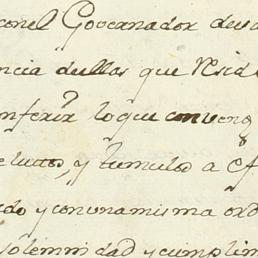 conel Governador desu
ncia dellas que Resid
nferir loque conveng
e lutos, y tumulos a
do y conunamisma ord
solemnidad y cumplim